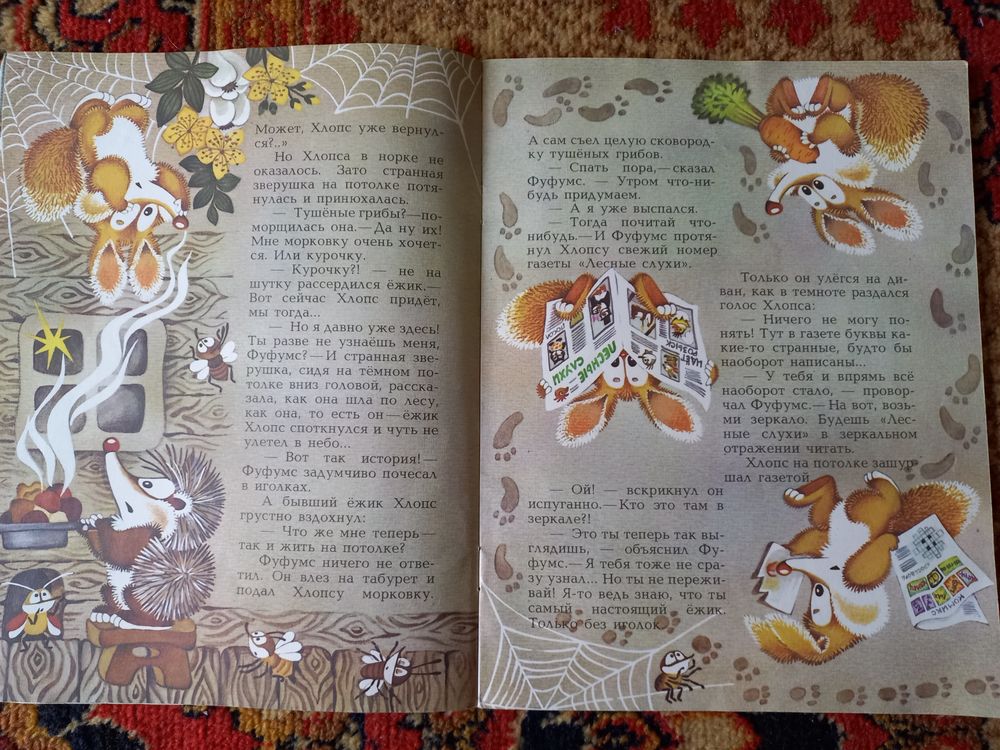 Может, Хлопс уже вернул-
ся?..»
Но Хлопса в норке не
оказалось. Зато странная
зверушка на потолке потя-
нулась и принюхалась.
— Тушёные грибы? — по-
морщилась она. — Да ну их!
Мне морковку очень хочет-
ся. Или курочку.
— Курочку?! — не на
шутку рассердился ёжик. —
Вот сейчас Хлопс придёт,
мы тогда...
— Но я давно уже здесь!
Ты разве не узнаёшь меня,
Фуфумс? — И странная зве-
рушка, сидя на тёмном по-
толке вниз головой, расска-
зала, как она шла по лесу,
как она, то есть он — ёжик
Хлопс споткнулся и чуть не
улетел в небо...
— Вот так история! —
Фуфумс задумчиво почесал
в иголках.
А бывший ёжик Хлопс
грустно вздохнул:
— Что же мне теперь —
так и жить на потолке?
Фуфумс ничего не отве-
тил. Он влез на табурет и
подал Хлопсу морковку.
А сам съел целую сковород-
ку тушёных грибов.
— Спать пора, — сказал
Фуфумс. — Утром что-ни-
будь придумаем.
— А я уже выспался.
— Тогда почитай что-
нибудь. — И Фуфумс протя-
нул Хлопсу свежий номер
газеты «Лесные слухи».
Только он улёгся на ди-
ван, как в темноте раздался
голос Хлопса:
— Ничего не могу по-
нять! Тут в газете буквы ка-
кие-то странные, будто бы
наоборот написаны...
— У тебя и впрямь всё
наоборот стало, — провор-
чал Фуфумс. — На вот, возь-
ми зеркало. Будешь «Лес-
ные слухи» в зеркальном
отражении читать.
Хлопс на потолке зашур-
шал газетой.
— Ой! — вскрикнул он
испуганно. — Кто это там в
зеркале?!
— Это ты теперь так вы-
глядишь, — объяснил Фу-
фумс. — Я тебя тоже не сра-
зу узнал... Но ты не пережи-
вай! Я-то ведь знаю, что ты
самый настоящий ёжик.
Только без иголок.
ЛЕСНЫЕ СЛУХИ
ИДЁТ
РОЗЫСК
КОМИКС